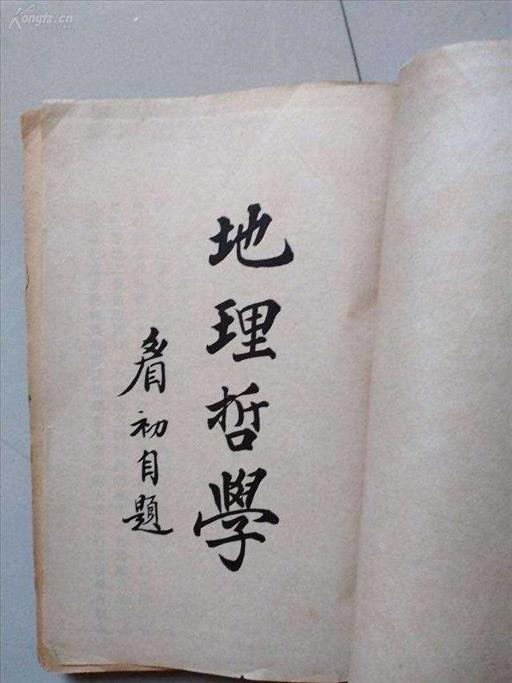 Kongfz.cn
地理哲學
初自題